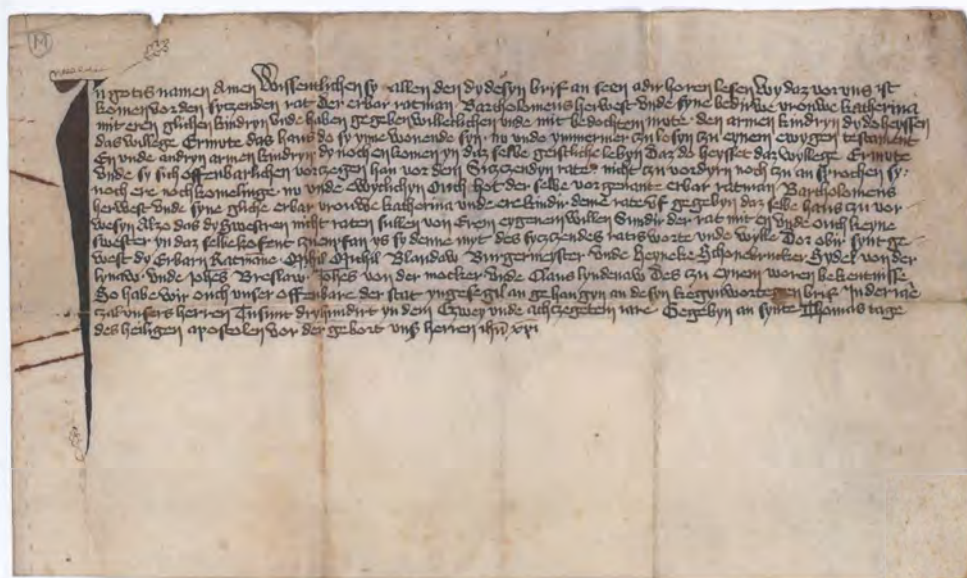 M
In gotis namen Amen Wissentlichen sy allen den dy desyn brif an seen adir horen lesen Wy daz vor uns ist
komen vor den syczenden rat der erbar ratman Bartholomeus herwest unde syne bedirwe vrouwe katherina
mit eren glichen kindryn unde haben gegeben willeclichen unde mit bedochtem mute den armen kindryn dy do heyssen
das willege Ermute das haus do sy yñe wonende syn nu unde ymmermer czu lesyn czu eynem ewygen testament
En unde andryn armen kindryn dy noch en komen yn daz selbe geistliche lebyn Daz do heysset daz wyllege Ermute
unde sy sich offenbarlichen vorzeigen han vor dem Siczczendyn rate nicht czu vordyrn noch czu an sprochen sy
noch ere nochkomelinge nu unde ewyclichyn Ouch hot der selbe vorgenante erbar ratman Bartholomeus
herwest unde syne gliche erbar vrouwe katherina unde ere kindir deme rate uf gegebyn daz selbe haus czu vor
wesyn Alzo das dy swestren nicht raten sullen von Erem eygenem willen Sundir der rat mit en unde ouch keyne
swester yn daz selbe kofent czu empfan ys sy denne myt des syczczendes ratis worte unde wylle Dor obir synt ge
west dy Erbarn Ratmanne Blandaw Burgermeyster unde heyneke Schonebrucker Sydel von der
lynaw unde Joh̃es Breslaw Joh̃es von der mocker unde Claus lyndenaw Des czu eynem woren bekentnisse
So habe wir ouch unser offenbare der stat yngesegil an gehangyn an desyn kegynwortegen brif In der
czal unsers herren Tusunt dryhundirt yn dem Czwey unde achczegetem iare Gegebyn an synte Thomas tage
des heiligen apostolen vor der gebort unß herren ihũ xpi